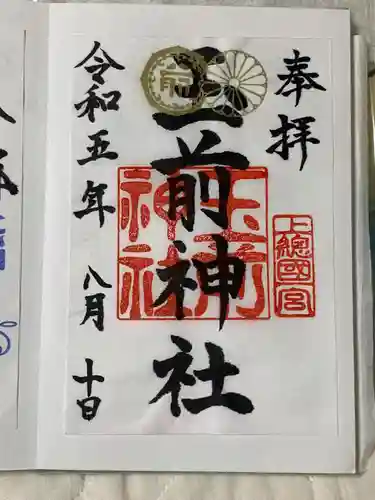 奉拝
上總國一宮
玉前神社
玉前神社
令和五年八月十日